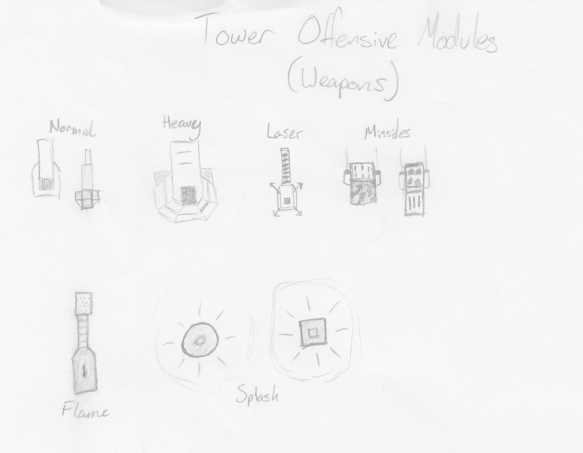 Tower Offensive Modules
(Weapons)
Normal
Heavy
Laser
Missiles
Flame
Splash